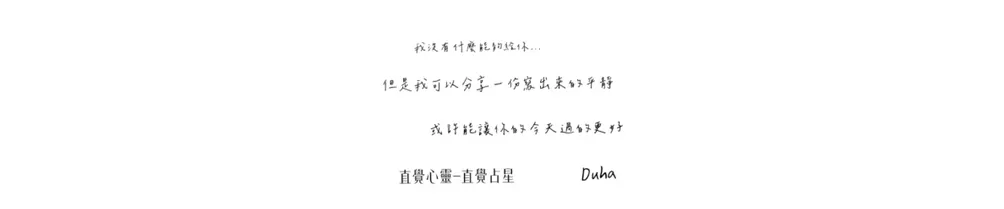 我沒有什麼能夠給你...
但是我可以分享一份寫出來的平靜
或許能讓你的今天過的更好
直覺心靈-直覺占星 Duha